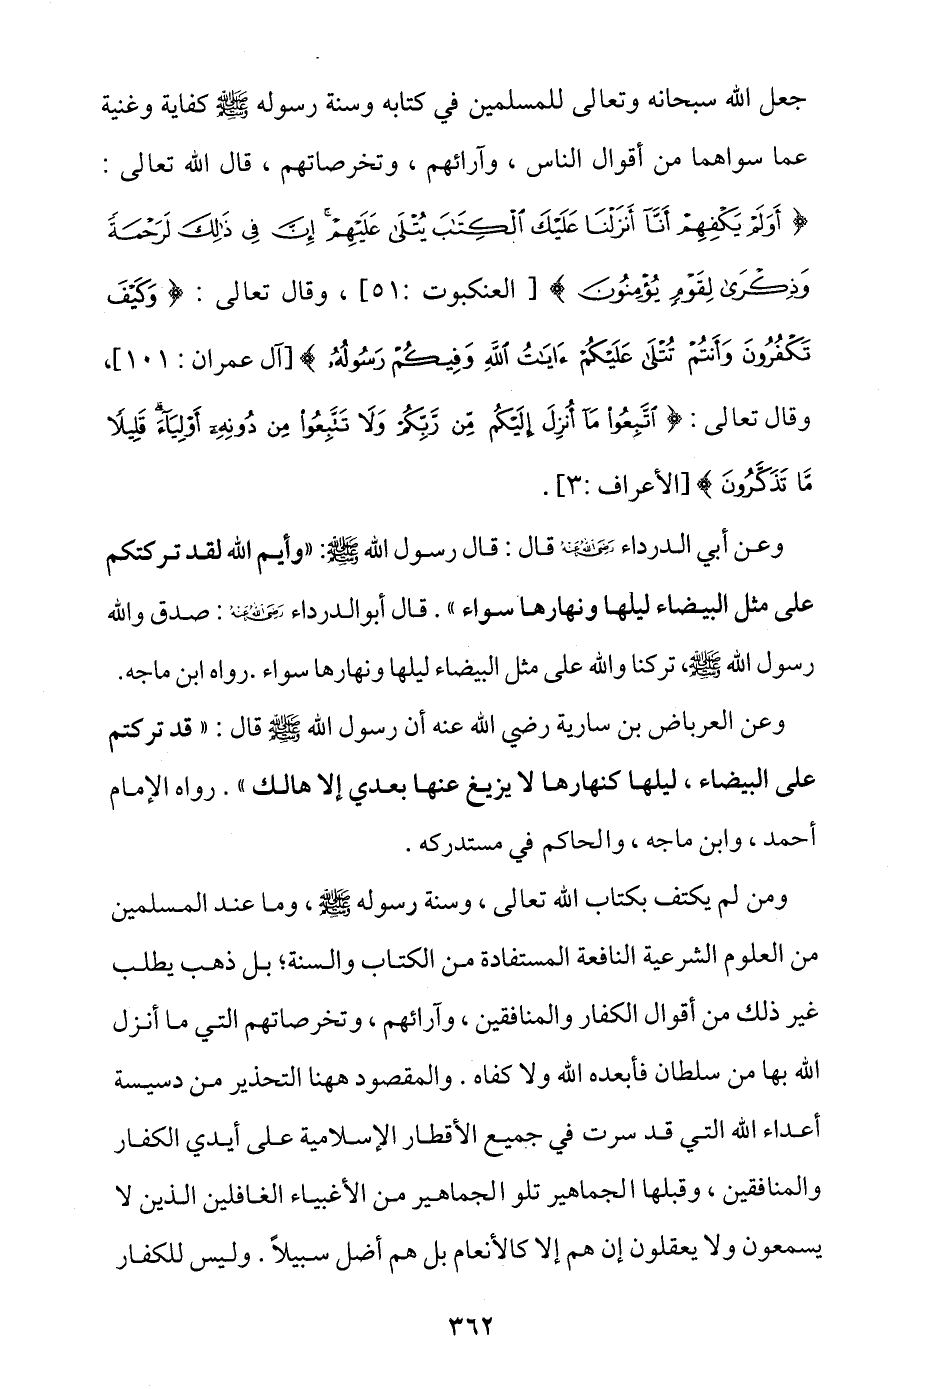 جعل الله سبحانه وتعالى للمسلمين في كتابه وسنة رسوله ﷺ كفاية وغنية
عما سواهما من أقوال الناس ، وآرائهم ، وتخرصاتهم ، قال الله تعالى :
﴿ أَوَلَمْ يَكْفِهِمْ أَنَّآ أَنزَلْنَا عَلَيْكَ ٱلْكِتَٰبَ يُتْلَىٰ عَلَيْهِمْ ۚ إِنَّ فِى ذَٰلِكَ لَرَحْمَةً
وَذِكْرَىٰ لِقَوْمٍ يُؤْمِنُونَ ﴾ [ العنكبوت :٥١] ، وقال تعالى : ﴿ وَكَيْفَ
تَكْفُرُونَ وَأَنتُمْ تُتْلَىٰ عَلَيْكُمْ ءَايَٰتُ ٱللَّهِ وَفِيكُمْ رَسُولُهُۥ ﴾ [آل عمران : ١٠١]،
وقال تعالى : ﴿ ٱتَّبِعُوا۟ مَآ أُنزِلَ إِلَيْكُم مِّن رَّبِّكُمْ وَلَا تَتَّبِعُوا۟ مِن دُونِهِۦٓ أَوْلِيَآءَ ۗ قَلِيلًا
مَّا تَذَكَّرُونَ ﴾ [الأعراف :٣] .
وعن أبي الدرداء رضي الله عنه قال : قال رسول الله ﷺ: «وأيم الله لقد تركتكم
على مثل البيضاء ليلها ونهارها سواء » . قال أبوالدرداء رضي الله عنه : صدق والله
رسول الله ﷺ، تركنا والله على مثل البيضاء ليلها ونهارها سواء .رواه ابن ماجه.
وعن العرباض بن سارية رضي الله عنه أن رسول الله ﷺ قال : « قد تركتم
على البيضاء ، ليلها كنهارها لا يزيغ عنها بعدي إلا هالك » . رواه الإمام
أحمد ، وابن ماجه ، والحاكم في مستدركه .
ومن لم يكتف بكتاب الله تعالى ، وسنة رسوله ﷺ ، وما عند المسلمين
من العلوم الشرعية النافعة المستفادة من الكتاب والسنة؛ بل ذهب يطلب
غير ذلك من أقوال الكفار والمنافقين ، وآرائهم ، وتخرصاتهم التي ما أنزل
الله بها من سلطان فأبعده الله ولا كفاه . والمقصود ههنا التحذير من دسيسة
أعداء الله التي قد سرت في جميع الأقطار الإسلامية على أيدي الكفار
والمنافقين ، وقبلها الجماهير تلو الجماهير من الأغبياء الغافلين الذين لا
يسمعون ولا يعقلون إن هم إلا كالأنعام بل هم أضل سبيلاً . وليس للكفار
٣٦٢